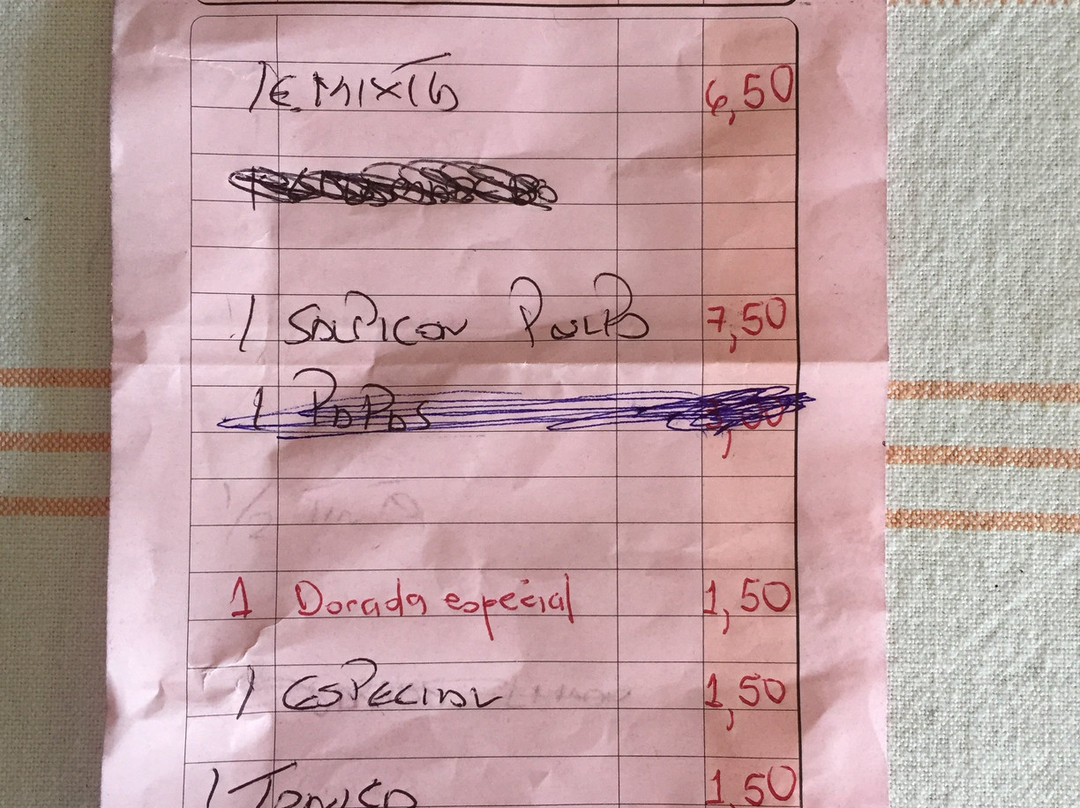 1 E MIXTA 6,50
1 SALPICON PULPO 7,50
1 PAPAS
1 Dorada especial 1,50
1 ESPECIAL 1,50
1 TONICA 1,50